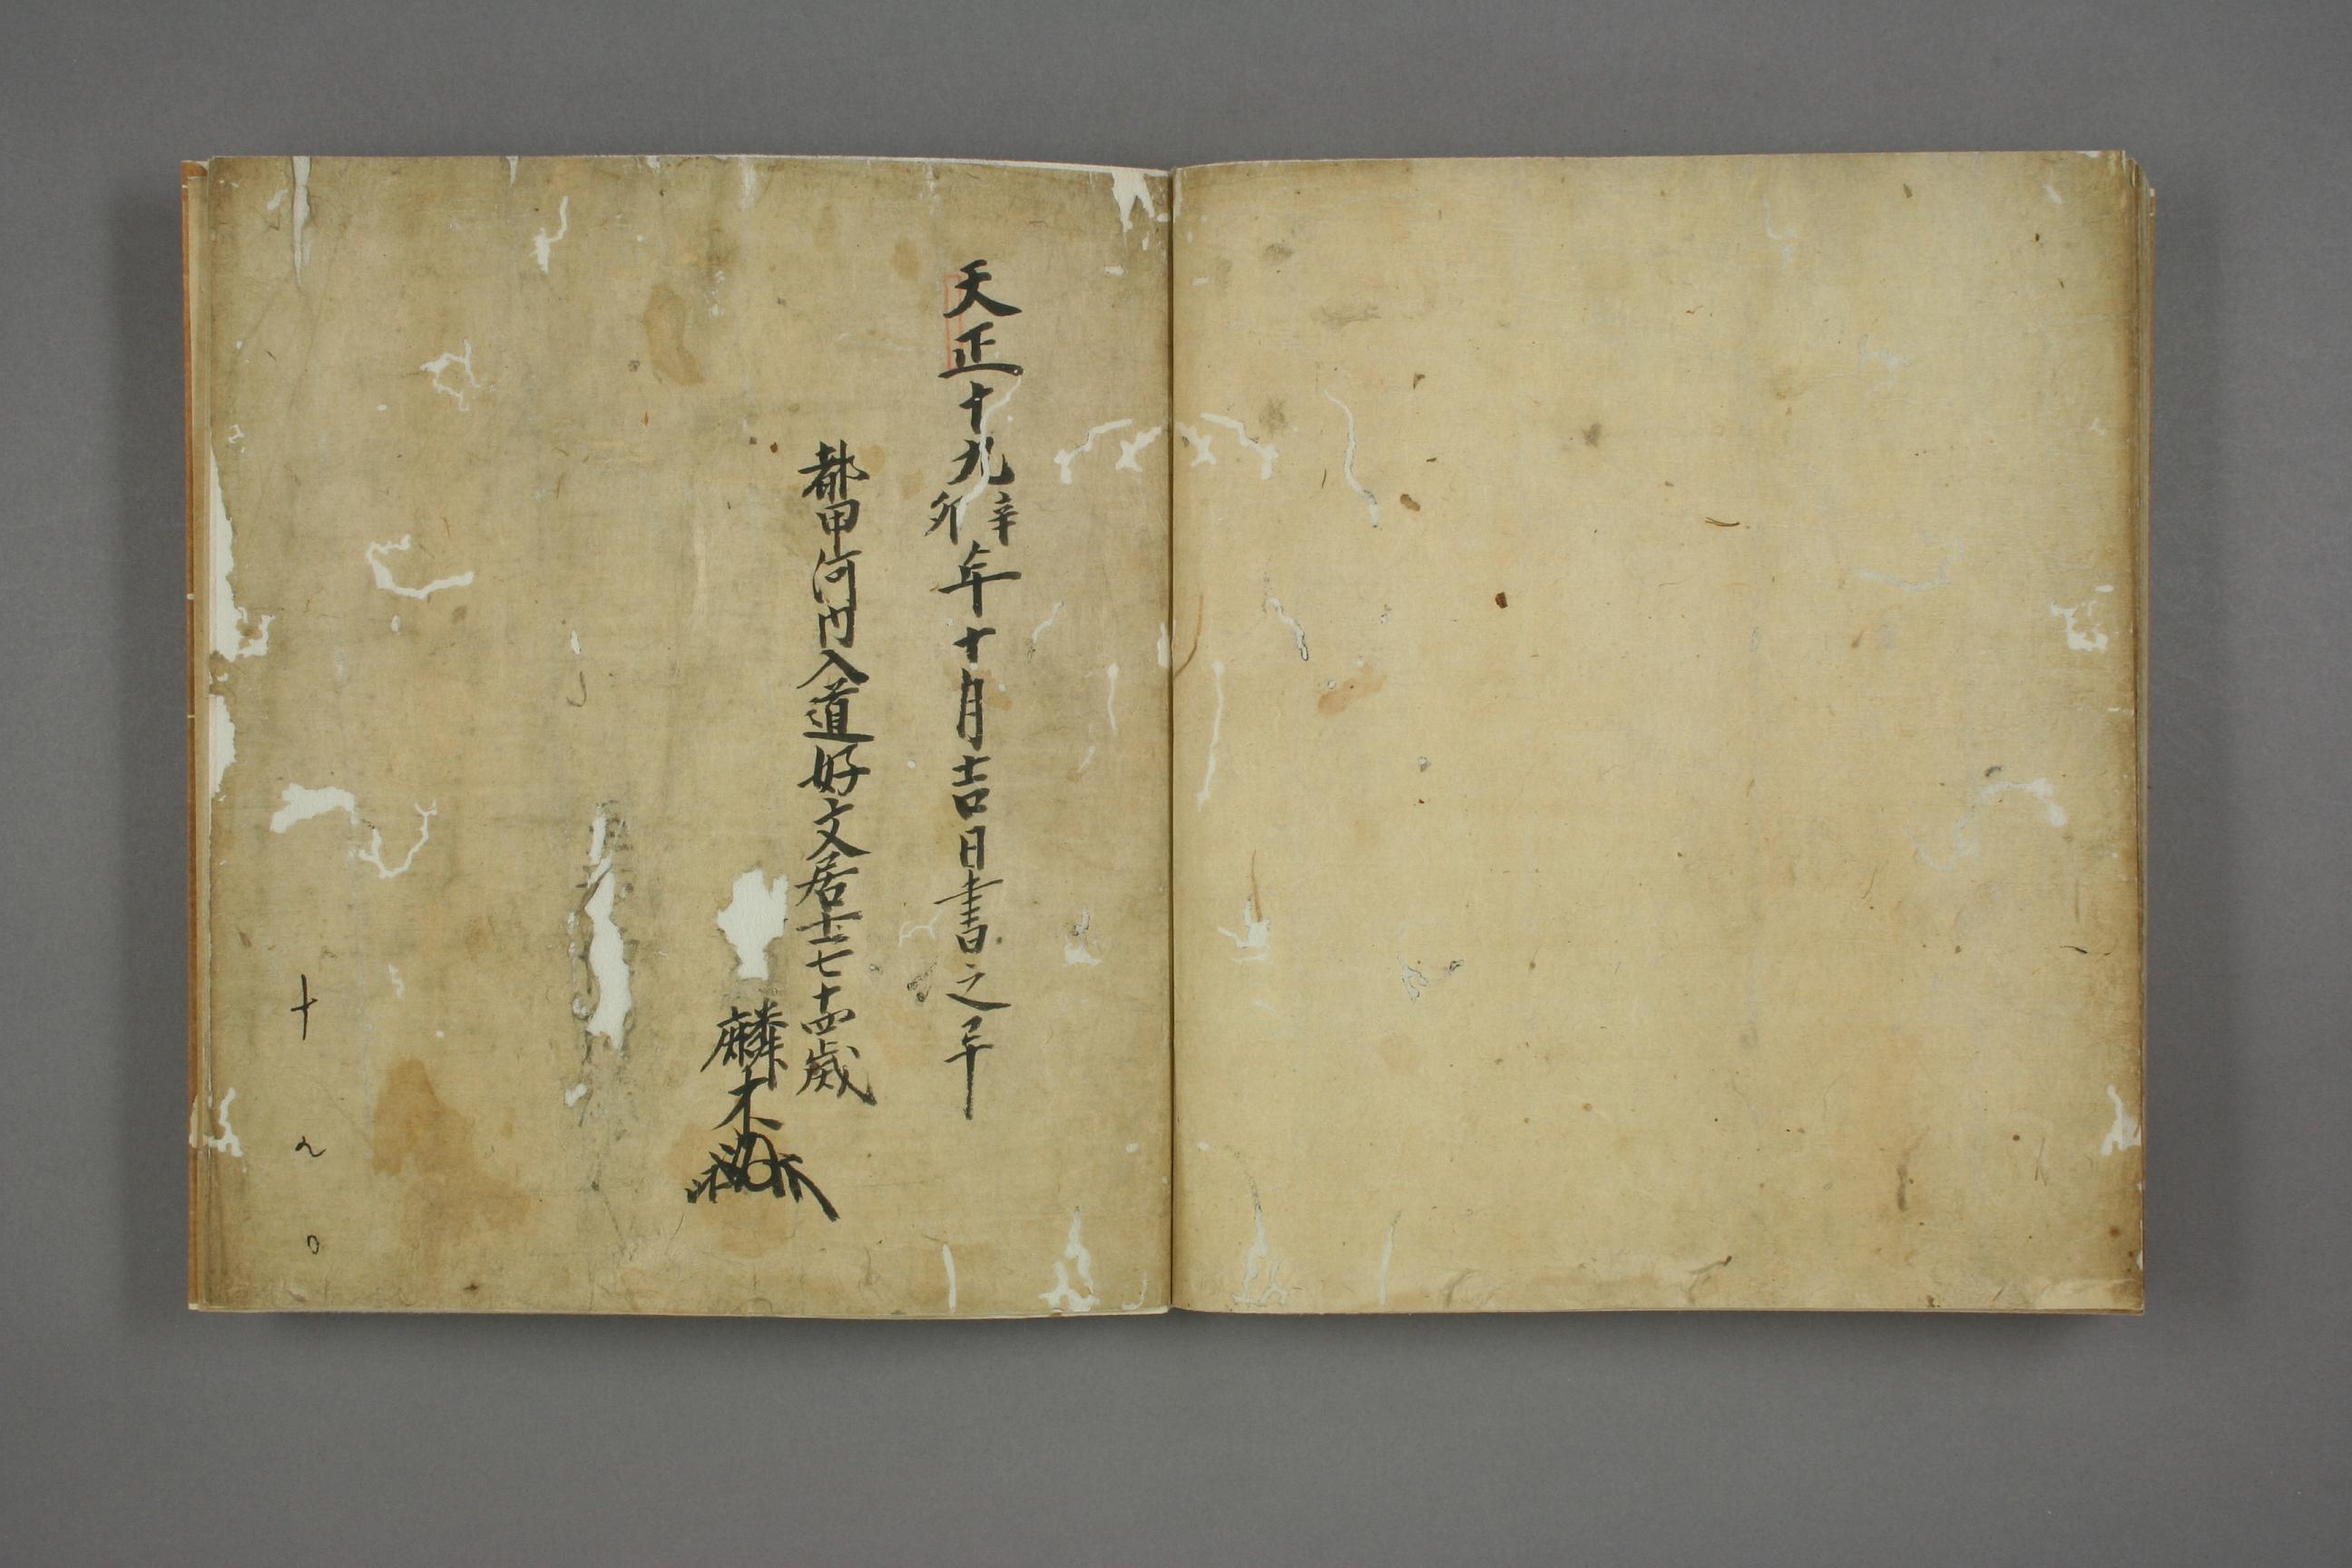 天正十九辛卯年十月吉日書之畢
都甲河内入道好文居士七十四歳
麟木